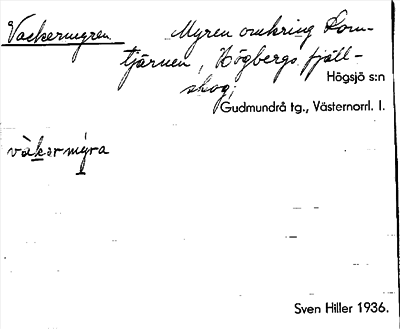 Vackermyren Myren omkring Korn-
tjärnen, Högbergs fjäll-
skog;
Högsjö s:n
Gudmundrå tg., Västernorrl. l.
vàkermýra
Sven Hiller 1936.